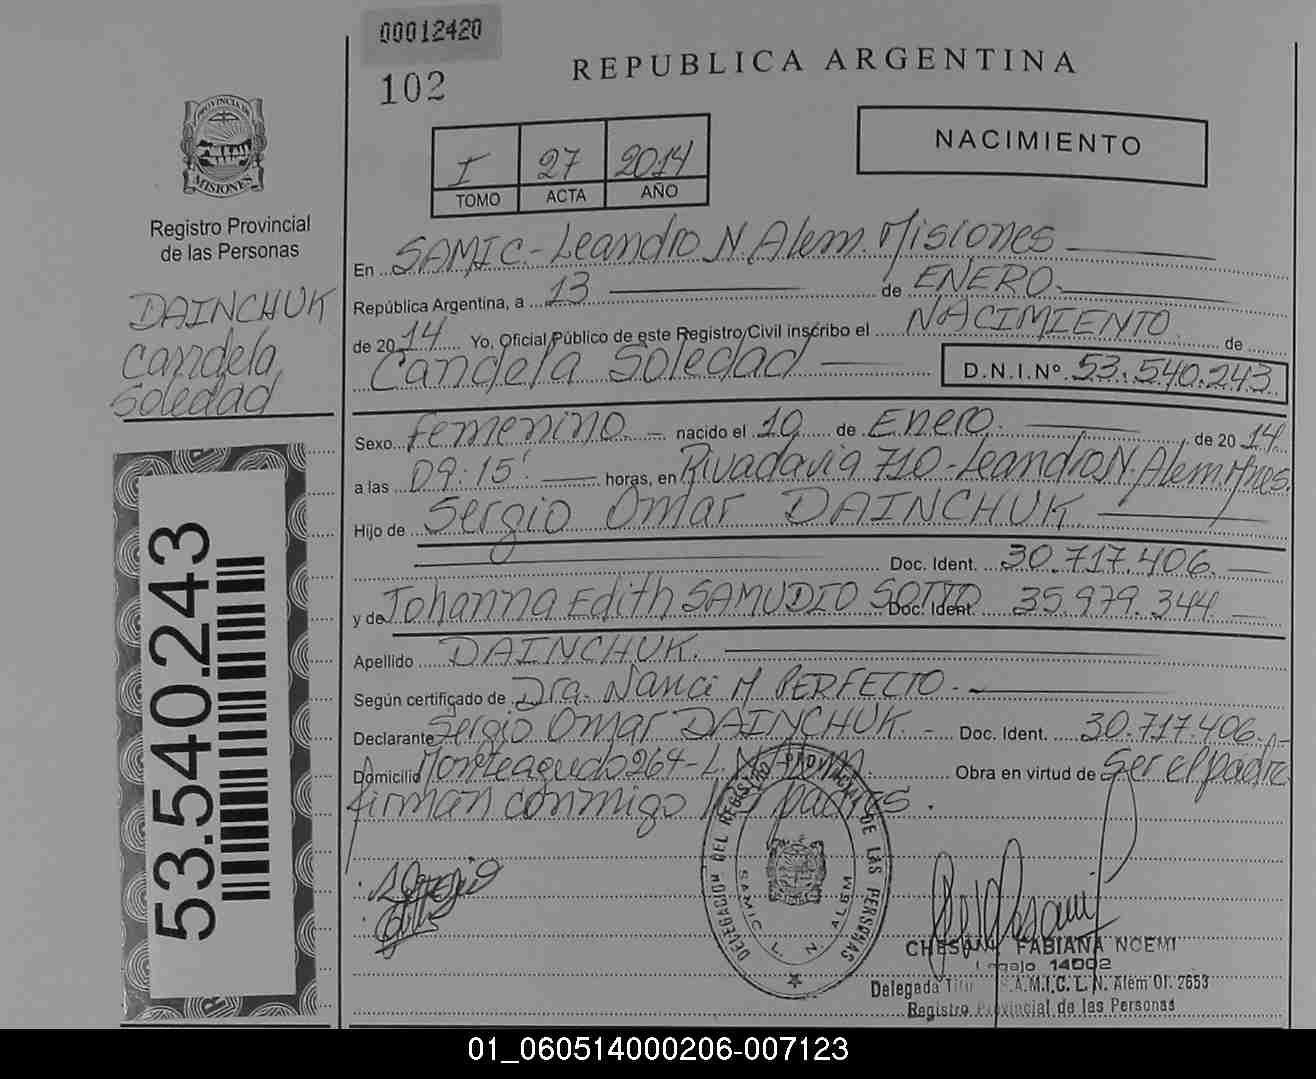 00012420
102
REPUBLICA ARGENTINA
NACIMIENTO
I 27 2014
TOMO ACTA AÑO
PROVINCIA DE
MISIONES
Registro Provincial
de las Personas
DAINCHUK
Candela
Soledad
53.540.243
En SAMIC.-Leandro N. Alem. Misiones
República Argentina, a 13 de ENERO.
de 2014 Yo, Oficial Público de este Registro Civil inscribo el NACIMIENTO de
Candela Soledad D.N.I.Nº 53.540.243
Sexo Femenino. nacido el 10 de Enero. de 2014.
a las 09:15' horas, en Rivadavia 710-Leandro N. Alem. Mnes.
Hijo de Sergio Omar DAINCHUK
Doc. Ident. 30.717.406.
y de Johanna Edith SAMUDIO SOTTO Doc. Ident. 35.979.344.
Apellido DAINCHUK.
Según certificado de Dra. Nanci M PERFECTO.
Declarante Sergio Omar DAINCHUK. Doc. Ident. 30.717.406.
Domicilio Monteagudo 264-L.N. Alem. Obra en virtud de Ser el padre
firman conmigo los padres.
DELEGACION DEL REGISTRO PROVINCIAL DE LAS PERSONAS
SAMIC L. N. ALEM
CHESANI FABIANA NOEMI
14002
Delegada S.A.M.I.C. L. N. Alem Of. 2653
Registro Provincial de las Personas
01_060514000206-007123